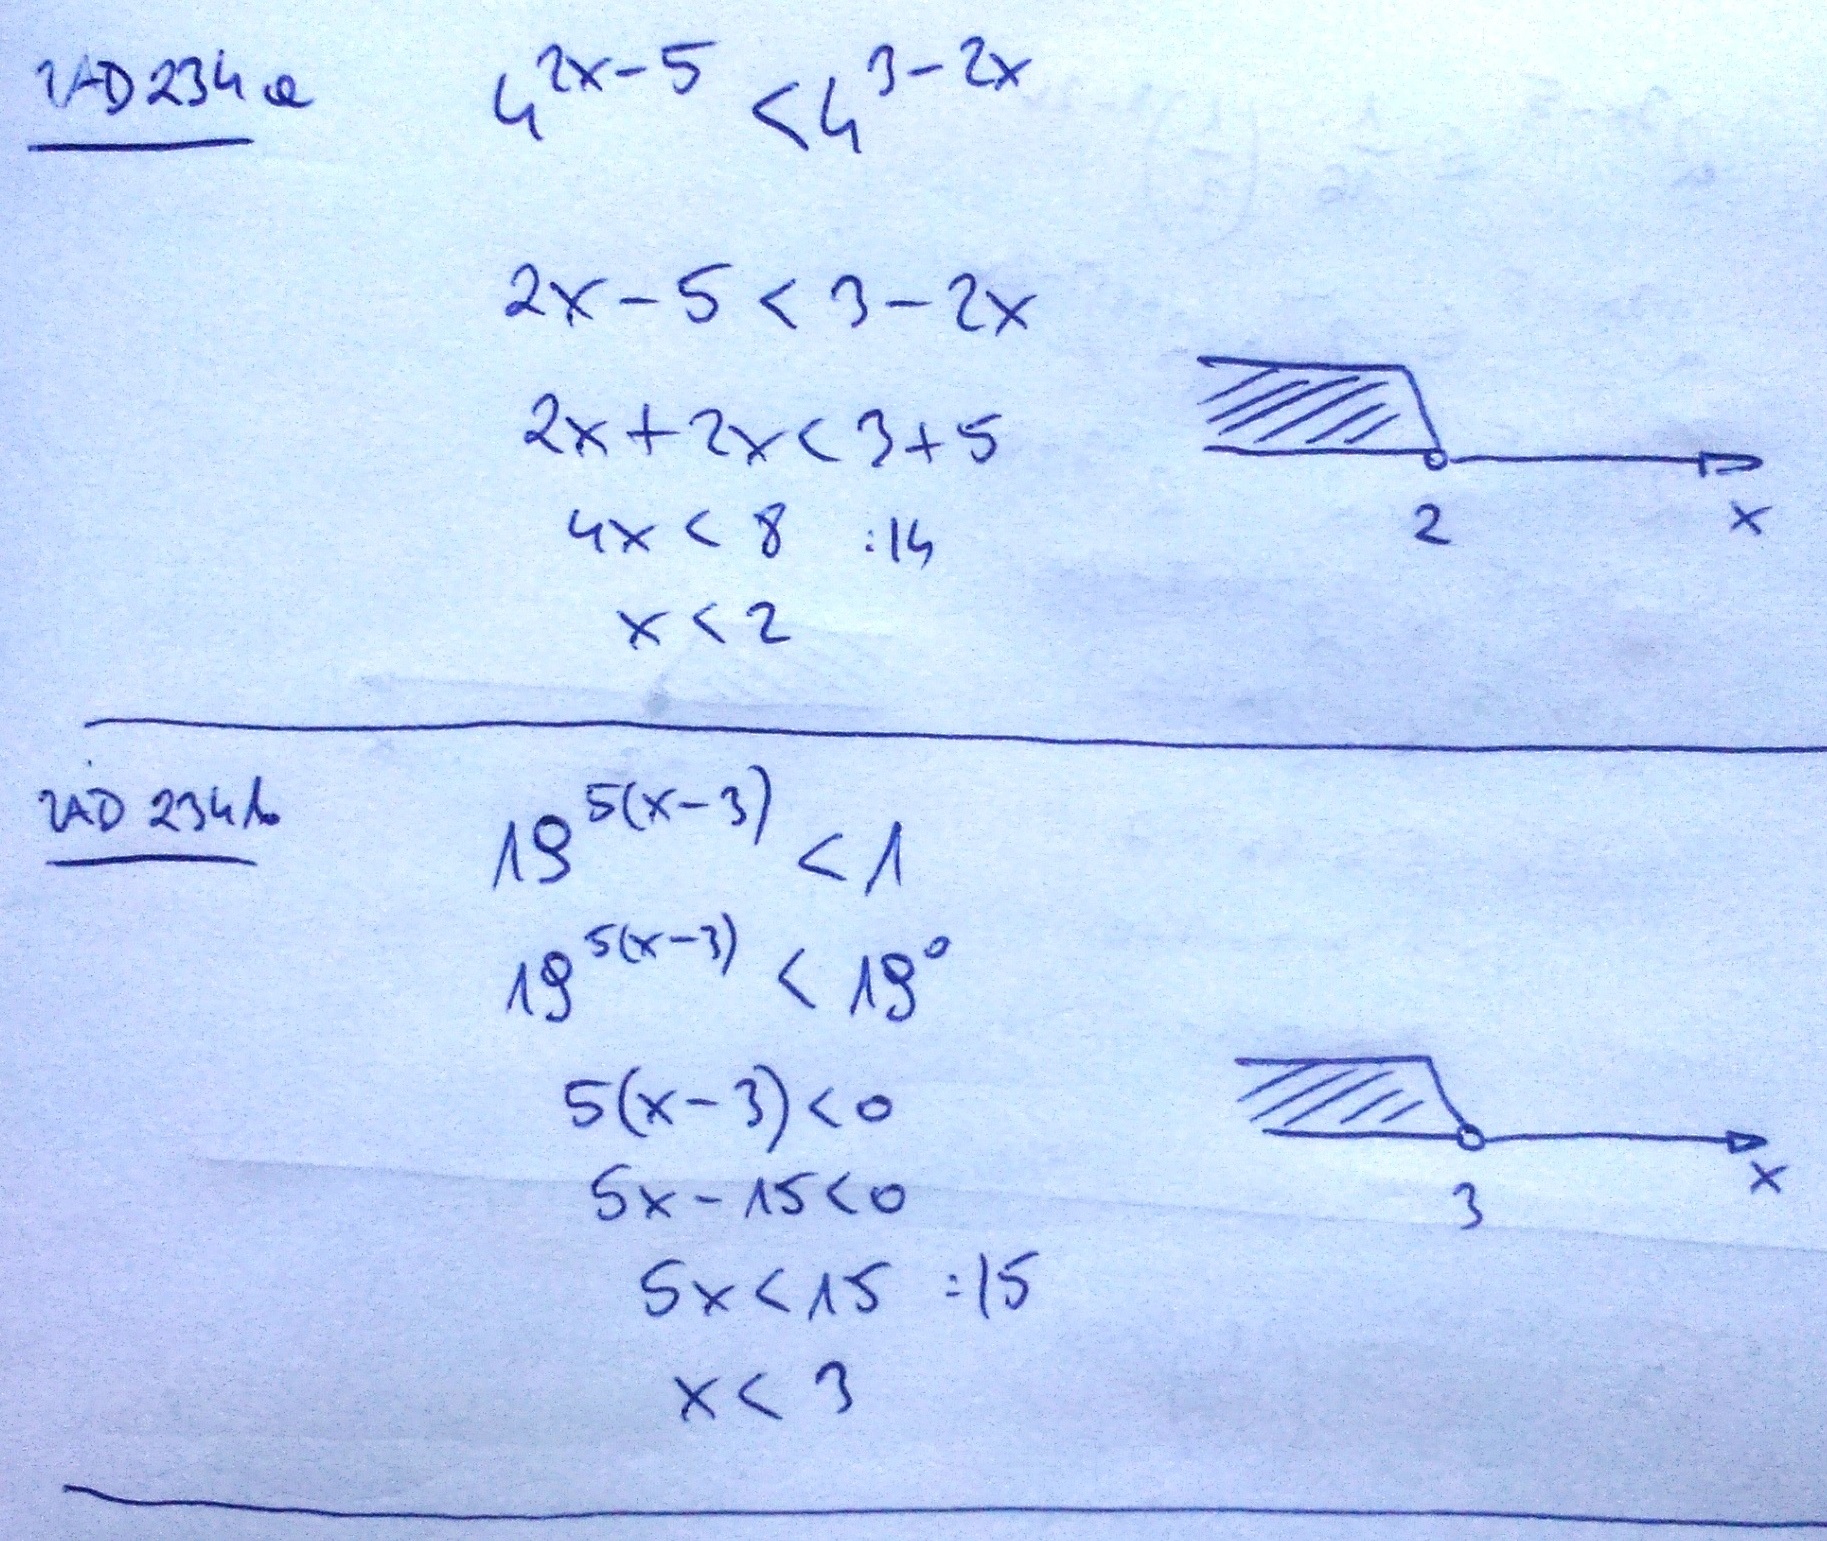 ZAD 234a
4^{2x-5} < 4^{3-2x}
2x - 5 < 3 - 2x
2x + 2x < 3 + 5
4x < 8 :|4
x < 2
2 x
ZAD 234b
19^{5(x-3)} < 1
19^{5(x-3)} < 19^0
5(x-3) < 0
5x - 15 < 0
5x < 15 :|5
x < 3
3 x